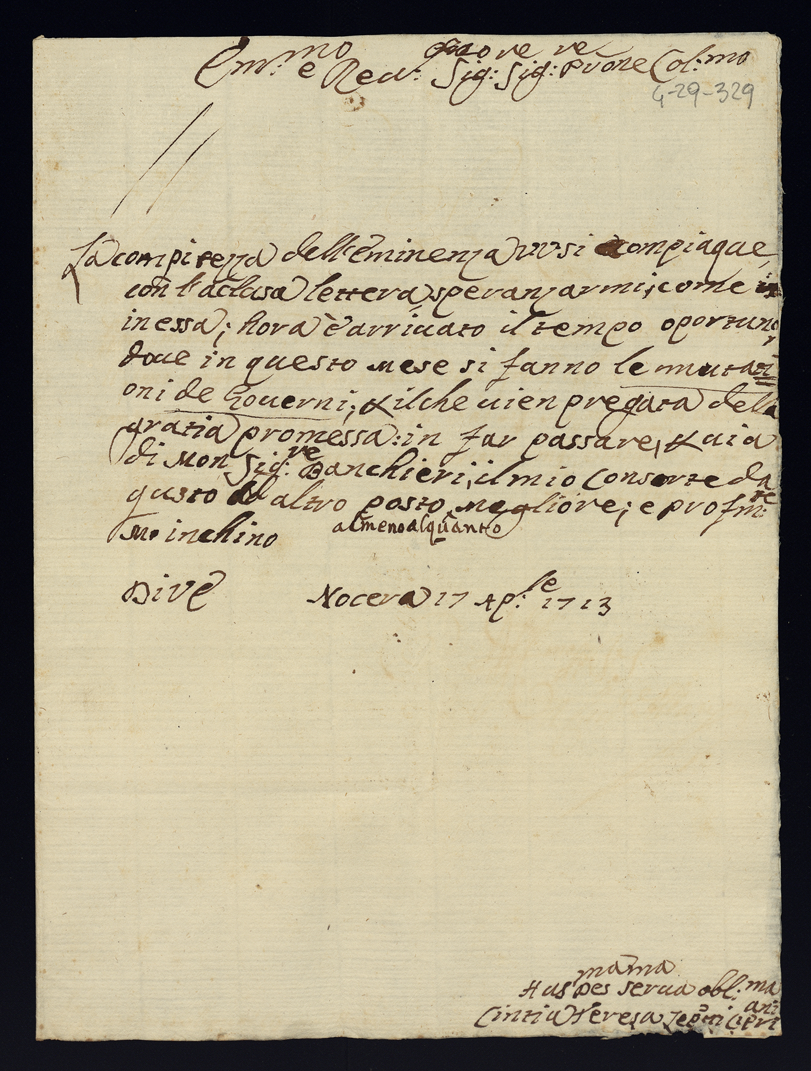 Em:mo e Reu: Sig:ore Sig:re Prone Col:mo
4-29-329
La compitezza dell'Eminenza VV si compiaque
con l'aclusa lettera speranzarmi, come in
in essa; hora è arriuato il tempo oportuno
doue in questo mese si fanno le mutati
oni de Gouerni; ilche uien pregata della
gratia promessa: in far passare, uia
di Mon Sig:re Banchieri, il mio Consorte da
gusto altro posto megliore; e profm:te
almeno alquanto
m'inchino
Di VE Nocera 17 Ap:le 1713
serua obl:ma
Cintia Teresa